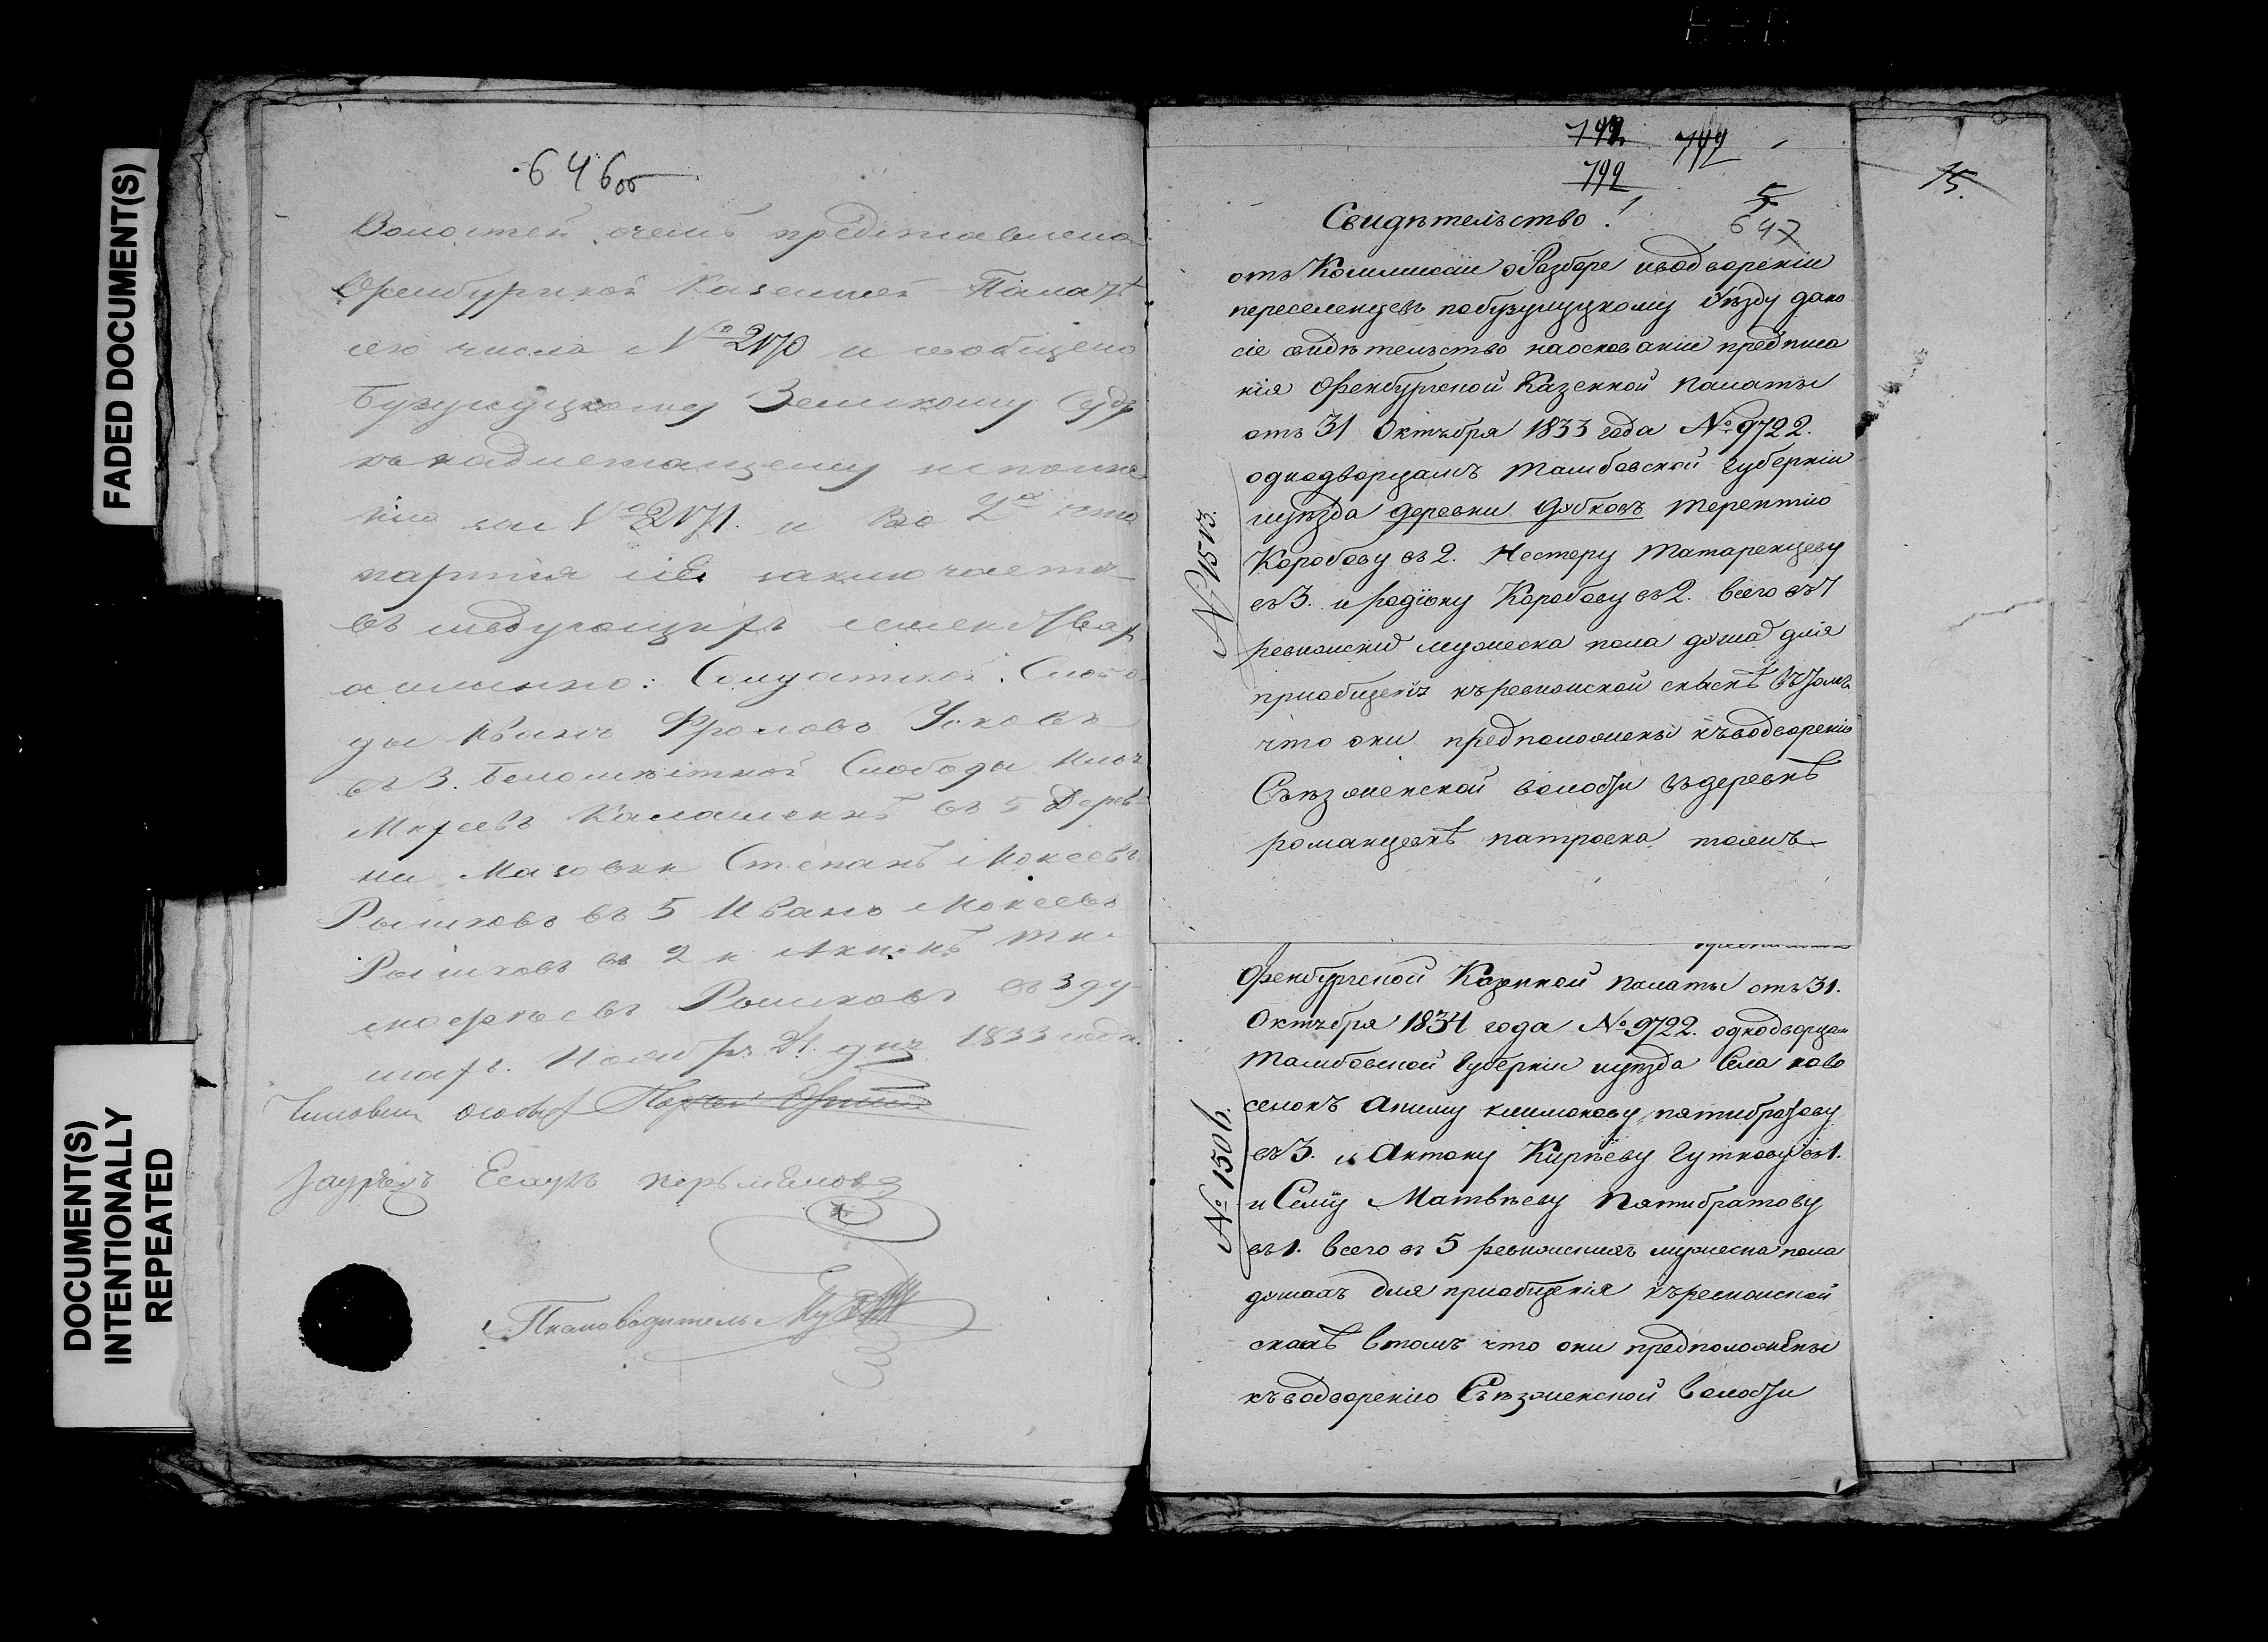 FADED DOCUMENT(S)
DOCUMENT(S)
INTENTIONALLY
REPEATED
646об
Волостей, очемъ представлено
Оренбургской Казенной Палатѣ
сего числа № 2170 и сообщено
Бузулуцкому Земскому Суду
къ надлежащему исполне
нію за № 2171. и Во 2х что
партія сія заключается
въ слѣдующихъ семействах
а имянно: Солдатской Слобо
ды Иванъ Фроловъ Усковъ
въ 3. Беломѣстной Слободы
Михеевъ Калашенкъ въ 5 Дерев
ни Масовки Степанъ Мокеевъ
Рышковъ въ 5 Иванъ Мокеевъ
Рышковъ въ 2 и Ти
мофѣевъ Рышковъ въ 3 ду
шахъ. Ноября 21. дня 1833 года.
Чиновник особых
Зауряд Есаулъ
Письмоводитель
792 792
792
5
647
15.
Свидѣтельство
отъ Коммисіи о Разборе и водвореніи
переселенцевъ побузулуцкому Уѣзду дано
сіе свидѣтельство наоснованіи предписа
нія Оренбургской Казенной палаты
отъ 31 Октября 1833 года № 9722.
однодворцамъ тамбовской губерніи
иуѣзда деревни Дубковъ терентію
Коробову въ 2. Нестеру татаренцеву
въ 3. и родіону Коробову въ 2. всего въ 7
ревизскихъ мужеска пола душахъ для
пріобщенія къ ревизской сказкѣ въ томъ
что они предположены къ водворенію
Съѣзженской волости въ деревнѣ
романцевкѣ патроена тожъ
№ 1513.
Оренбургской Казенной палаты отъ 31.
Октября 1834 года № 9722. однодворцам
тамбовской губерніи иуѣзда Села ново
селокъ Акиму климонову пятибратову
въ 3. и Антону Кирѣеву Гуткову въ 1.
и Семu Матвѣеву Пятибратову
въ 1. всего въ 5 ревизскихъ мужеска пола
душахъ для пріобщенія къ ревизской
сказкѣ в томъ что они предположены
къ водворенію Съѣзженской волости
№ 150